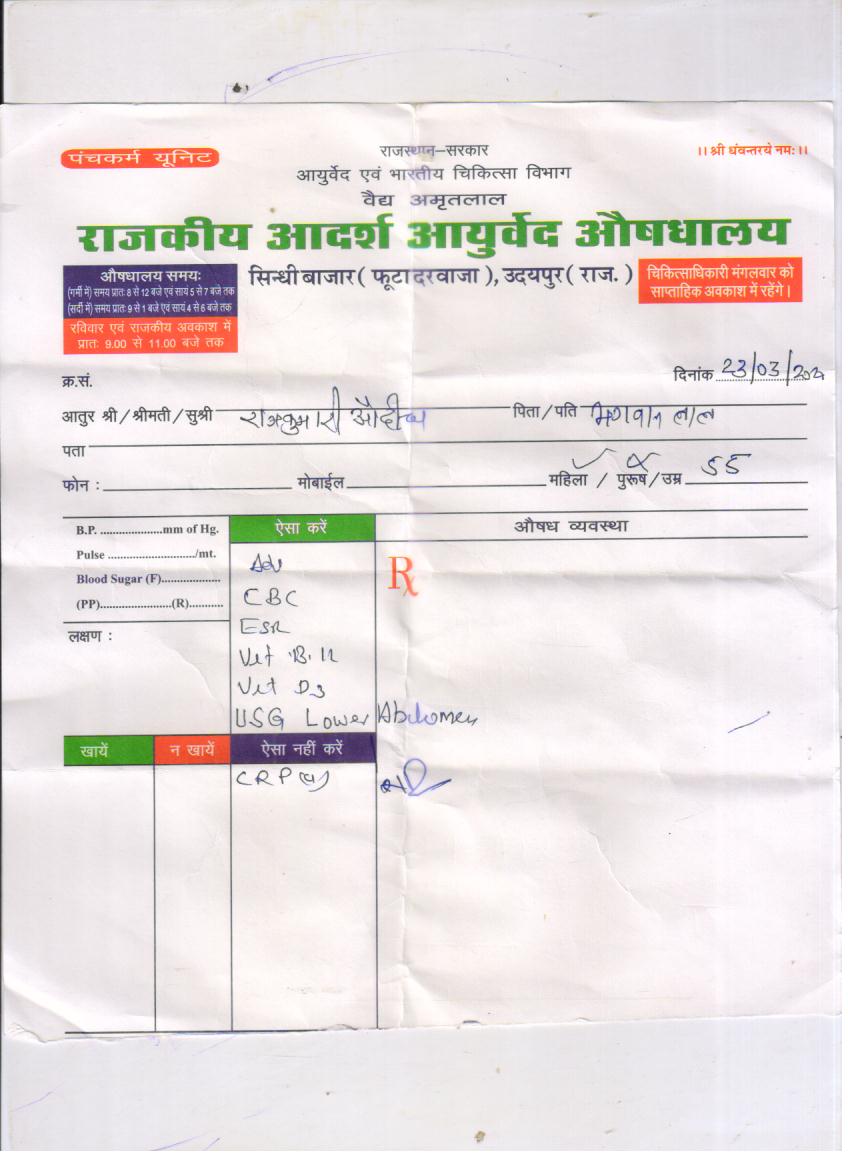 पंचकर्म यूनिट
राजस्थान-सरकार
।। श्री धंवन्तरये नमः ।।
आयुर्वेद एवं भारतीय चिकित्सा विभाग
वैद्य अमृतलाल
राजकीय आदर्श आयुर्वेद औषधालय
औषधालय समयः
(गर्मी में) समय प्रातः 8 से 12 बजे एवं सायं 5 से 7 बजे तक
(सर्दी में) समय प्रातः 9 से 1 बजे एवं सायं 4 से 6 बजे तक
रविवार एवं राजकीय अवकाश में
प्रातः 9.00 से 11.00 बजे तक
सिन्धी बाजार ( फूटा दरवाजा ), उदयपुर ( राज. )
चिकित्साधिकारी मंगलवार को
साप्ताहिक अवकाश में रहेंगे।
दिनांक 23/03/202
क्र.सं.
आतुर श्री/श्रीमती/सुश्री राजकुमारी औदीच्य पिता/पति भगवान लाल
पता
फोन : मोबाईल महिला / पुरूष/उम्र 55
B.P. .....................mm of Hg.
Pulse ............................../mt.
Blood Sugar (F)....................
(PP)........................(R)...........
लक्षण :
ऐसा करें
Adv
CBC
ESR
Vit B.12
Vit D3
USG Lower Abdomen
औषध व्यवस्था
Rx
खायें
न खायें
ऐसा नहीं करें
CRP